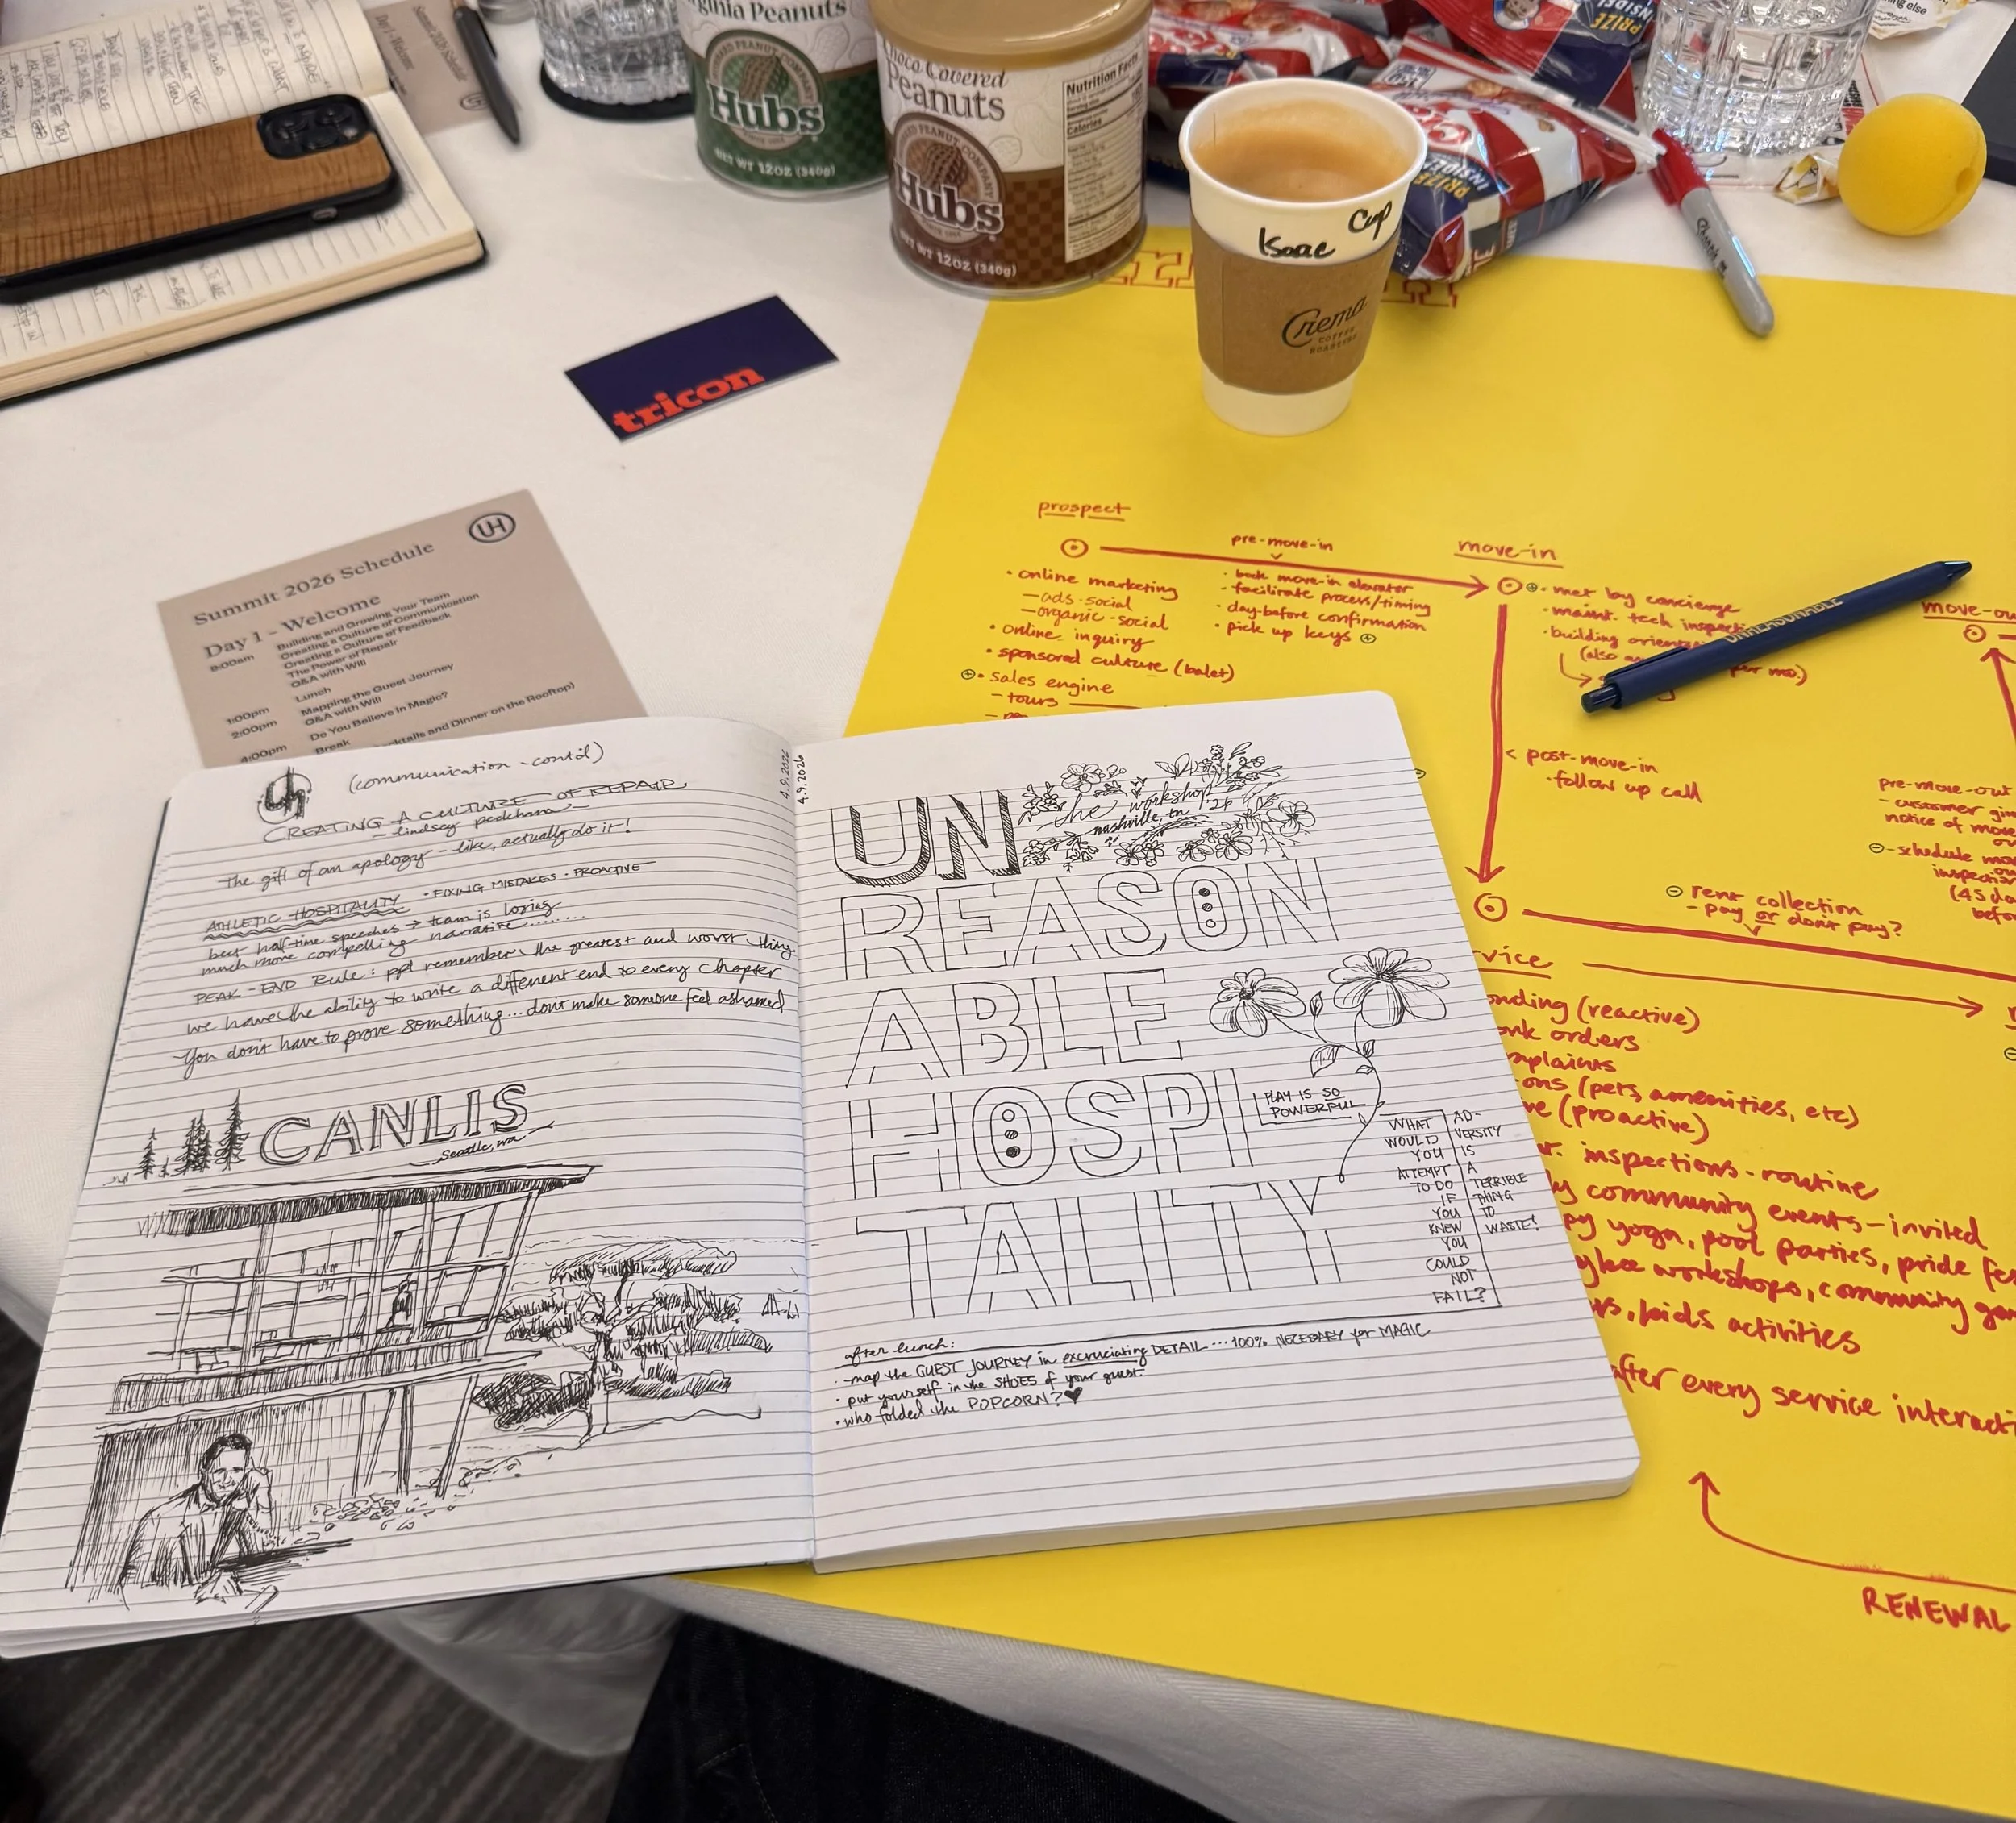 Virginia Peanuts
Hubs
NET WT 12OZ (340g)
Choco Covered
Peanuts
Hubs
NET WT 12OZ (340g)
Nutrition Facts
Calories
PRIZE
INSIDE
PRIZE
INSIDE
Sharpie
Isaac Cup
Crema
COFFEE
ROASTERS
tricon
UH
Summit 2026 Schedule
Day 1 – Welcome
9:00am Building and Growing Your Team
Creating a Culture of Communication
Creating a Culture of Feedback
The Power of Repair
Q&A with Will
Lunch
1:00pm Mapping the Guest Journey
2:00pm Q&A with Will
Do You Believe in Magic?
4:00pm Break
cktails and Dinner on the Rooftop)
uh
(communication - cont'd)
CREATING A CULTURE OF REPAIR
The gift of an apology – like, actually do it!
ATHLETIC HOSPITALITY • FIXING MISTAKES • PROACTIVE
best half-time speeches → team is losing
much more compelling narrative.......
PEAK-END Rule: ppl remember the greatest and worst thing
we have the ability to write a different end to every chapter
You don't have to prove something... don't make someone feel ashamed
CANLIS
Seattle, wa
4.9.2026
4.9.2026
UN
the workshop '26
nashville, tn
REASON
ABLE
HOSPI
TALITY
PLAY IS SO
POWERFUL
WHAT
WOULD
YOU
ATTEMPT
TO DO
IF
YOU
KNEW
YOU
COULD
NOT
FAIL?
AD-
VERSITY
IS
A
TERRIBLE
THING
TO
WASTE!
after lunch:
- map the GUEST JOURNEY in excruciating DETAIL ... 100% NECESSARY for MAGIC
• put yourself in the SHOES of your guest.
• who folded the POPCORN? ♥
prospect
• online marketing
– ads - social
– organic - social
• online inquiry
• sponsored culture (balet)
⊕• sales engine
– tours
pre-move-in
• book move-in elevator
• facilitate process/timing
• day-before confirmation
• pick up keys ⊕
move-in
⊕• met by concierge
• maint. tech inspecti
• building orient
(also
per mo.)
UNREASONABLE
move-ou
< post-move-in
• follow up call
pre-move-out
– customer gi
notice of mov
⊖ – schedule mo
inspecti
(45 da
befor
⊖ rent collection
– pay or don't pay?
rvice
onding (reactive)
ork orders
mplaints
ons (pets, amenities, etc)
ve (proactive)
r. inspections - routine
ly community events – invited
py yoga, pool parties, pride fes
ybee workshops, community ga
rs, kids activities
after every service interacti
RENEWAL